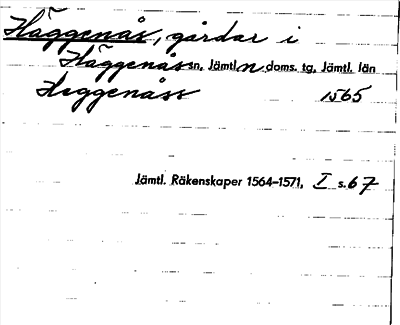 Häggenås, gårdar i
Häggenås sn, Jämtl. n. doms. tg, Jämtl. län
Heggenåss 1565
Jämtl. Räkenskaper 1564–1571, I s. 67